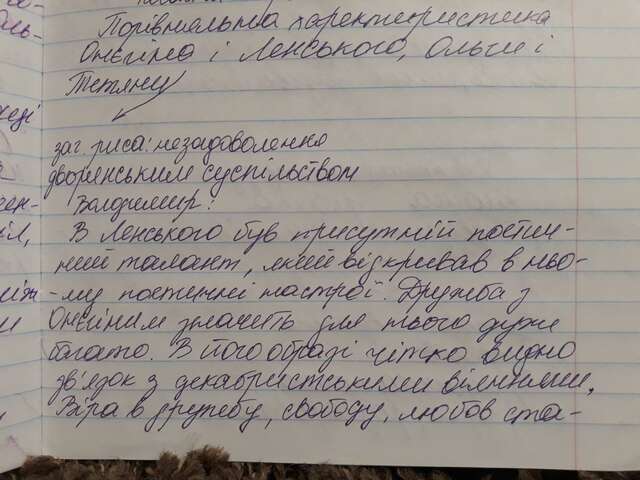 Порівняльна характеристика
Онєгіна і Ленського, Ольги і
Тетяни
заг. риса: незадоволення
дворянським суспільством
Володимир:
В Ленського був присутній поетич-
ний талант, який відкривав в ньо-
-му поетичні настрої. Дружба з
Онєгіним значить для нього дуже
багато. В його образі чітко видно
зв'язок з декабристськими
Віра в дружбу, свободу, любов ста-